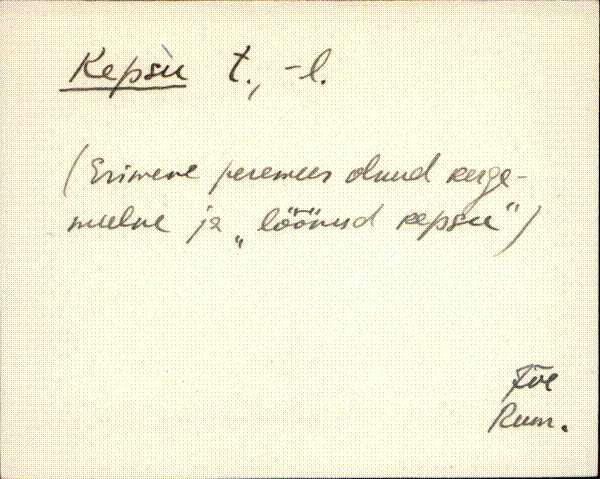 Kepsu t., -l.
(Esimene peremees olnud kerge-
meelne ja „löönud kepsu")
Jõe
Rum.